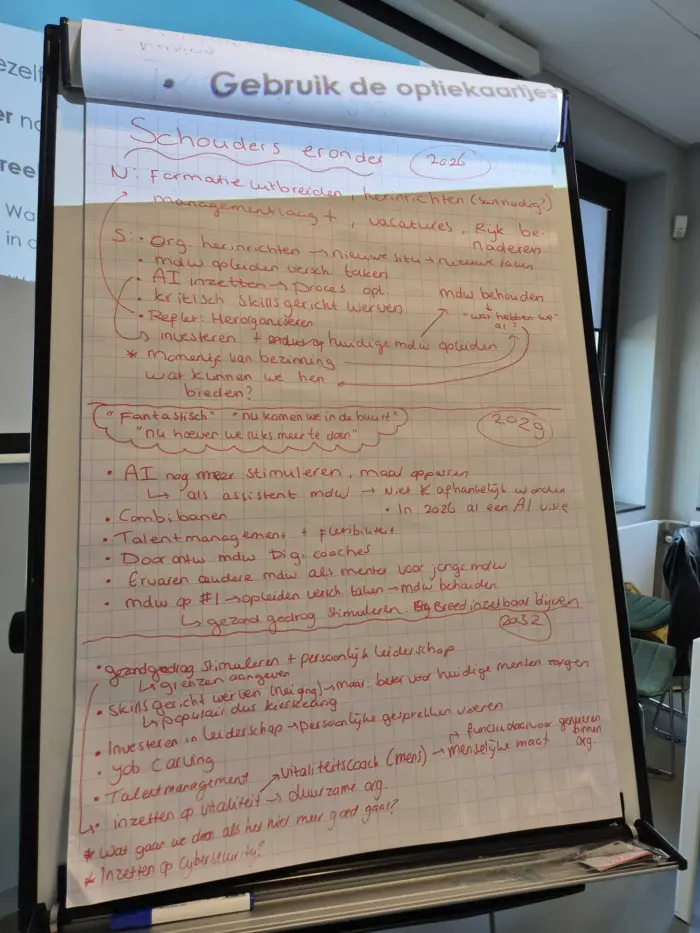 ezelf
er no
ree
Wa
in d
• Gebruik de optiekaartjes
Schouders eronder 2026
N: Formatie uitbreiden, herinrichten (susnodig?)
managementlaag +, vacatures, Rijk be-
naderen
S: • org. herinrichten → nieuwe situ → nieuwe taken
• mdw opleiden versch taken
• AI inzetten → proces opt.
• kritisch skillsgericht werven
mdw behouden
• Reflex: Herorganiseren
"wat hebben we al?"
↳ investeren + huidige mdw opleiden
* Momentje van bezinning
wat kunnen we hen
bieden?
"Fantastisch" "nu komen we in de buurt"
"nu hoeven we niks meer te doen"
2029
• AI nog meer stimuleren, maar oppassen
↳ als assistent mdw → Niet afhankelijk worden
• In 2026 al een AI visie
• Combibanen
• Talentmanagement + flexibiliteit
• Doorontw mdw Digicoaches
• Ervaren oudere mdw als mentor voor jonge mdw
• mdw op #1 → opleiden versch taken → mdw behouden
↳ gezond gedrag stimuleren. Breed inzetbaar blijven
2032
• gezond gedrag stimuleren + persoonlijk leiderschap
↳ grenzen aangeven
• Skillsgericht werven (neiging) → maar: beter voor huidige mensen zorgen
↳ populair dus kieskeurig
• Investeren in leiderschap → persoonlijke gesprekken voeren
• Job Carving
• Talentmanagement
vitaliteitscoach (mens) → menselijke maat
→ functie daarvoor creëren binnen org.
• inzetten op vitaliteit → duurzame org.
* Wat gaan we doen als het niet meer goed gaat?
* Inzetten op cybersecurity?